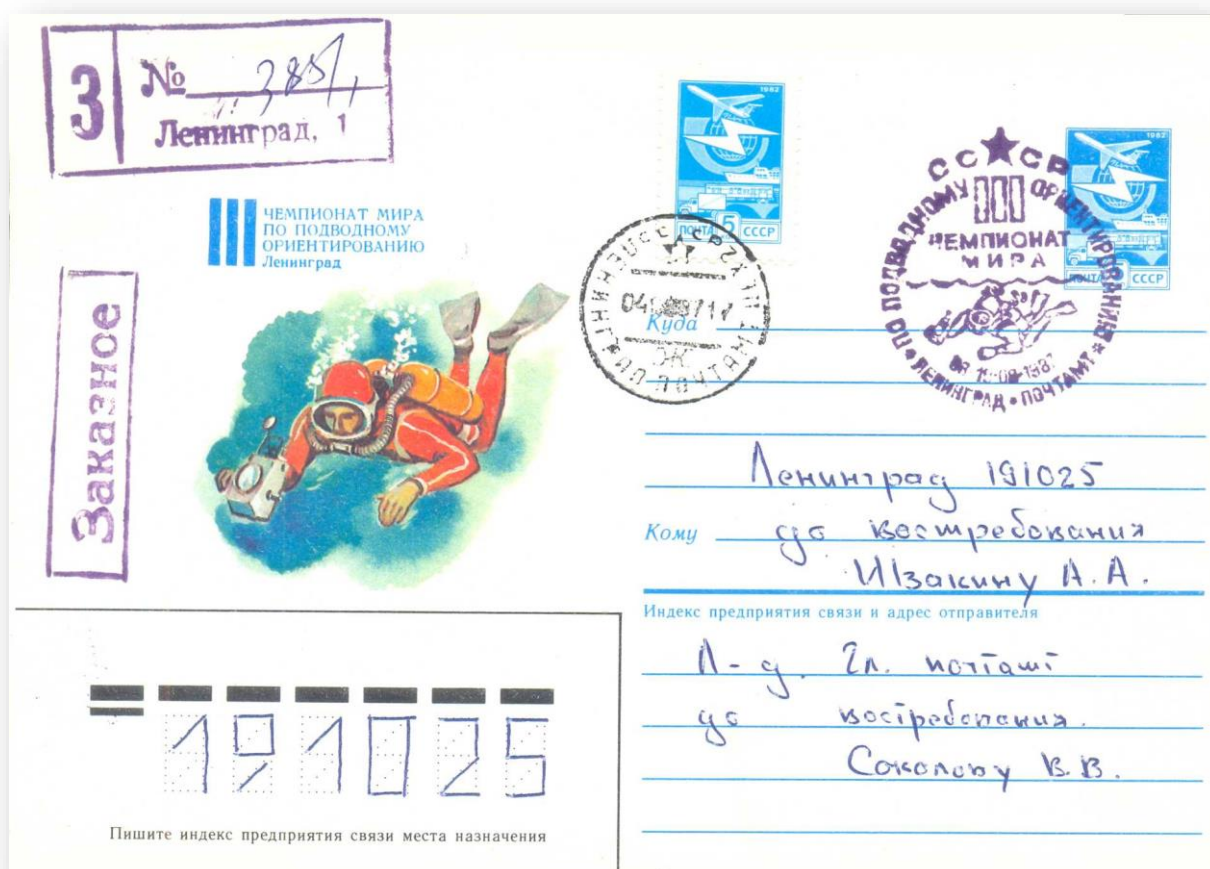 З
№ 385/1
Ленинград, 1
III
ЧЕМПИОНАТ МИРА
ПО ПОДВОДНОМУ
ОРИЕНТИРОВАНИЮ
Ленинград
Заказное
1982
ПОЧТА 5 СССР
ЛЕНИНГРАД ПОЧТАМТ
СССР
ПО ПОДВОДНОМУ ОРИЕНТИРОВАНИЮ
III
ЧЕМПИОНАТ
МИРА
ЛЕНИНГРАД • ПОЧТАМТ
1982
ПОЧТА СССР
Куда
Ленинград 191025
Кому до востребования
Изакину А. А.
Индекс предприятия связи и адрес отправителя
Л-д. Гл. почтамт
до востребования.
Соколову В. В.
191025
Пишите индекс предприятия связи места назначения